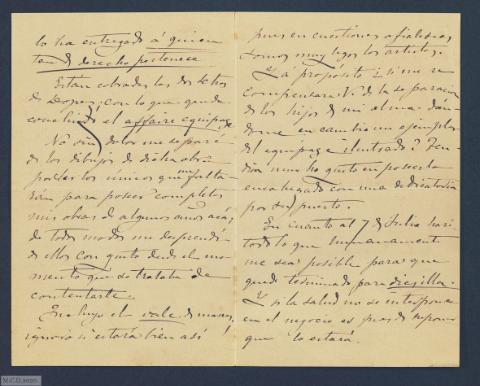 lo ha entregado á quien
de derecho pertenece
Estan cobradas las dos letras
de Lopez, con lo que queda
concluido el affaire equipage
No sin dolor me separé
de los dibujos de dicha obra
por ser los únicos que me falta-
rán para poseer completas
mis obras de algunos años acá;
de todos modos me desprendí
de ellos con gusto desde el mo-
mento que se trataba de
contentarte.
Incluyo el vale de marras,
ignoro si estará bien así!
pues en cuestiones oficialescas
somos muy legos los artistas.
Y á propósito ¿si me re-
compensara V. de la separación
de los hijos de mi alma dan-
dome en cambio un ejemplar
del equipage ilustrado? Ten-
dria mucho gusto en poseerlo
encabezado con una dedicatoria
por supuesto.
En cuanto al 7 de Julio haré
todo lo que humanamente
me sea posible para que
quede terminado para
Y si la salud no se interpone
en el negocio es puedo suponer
que lo estará.
M.C.D. 2020